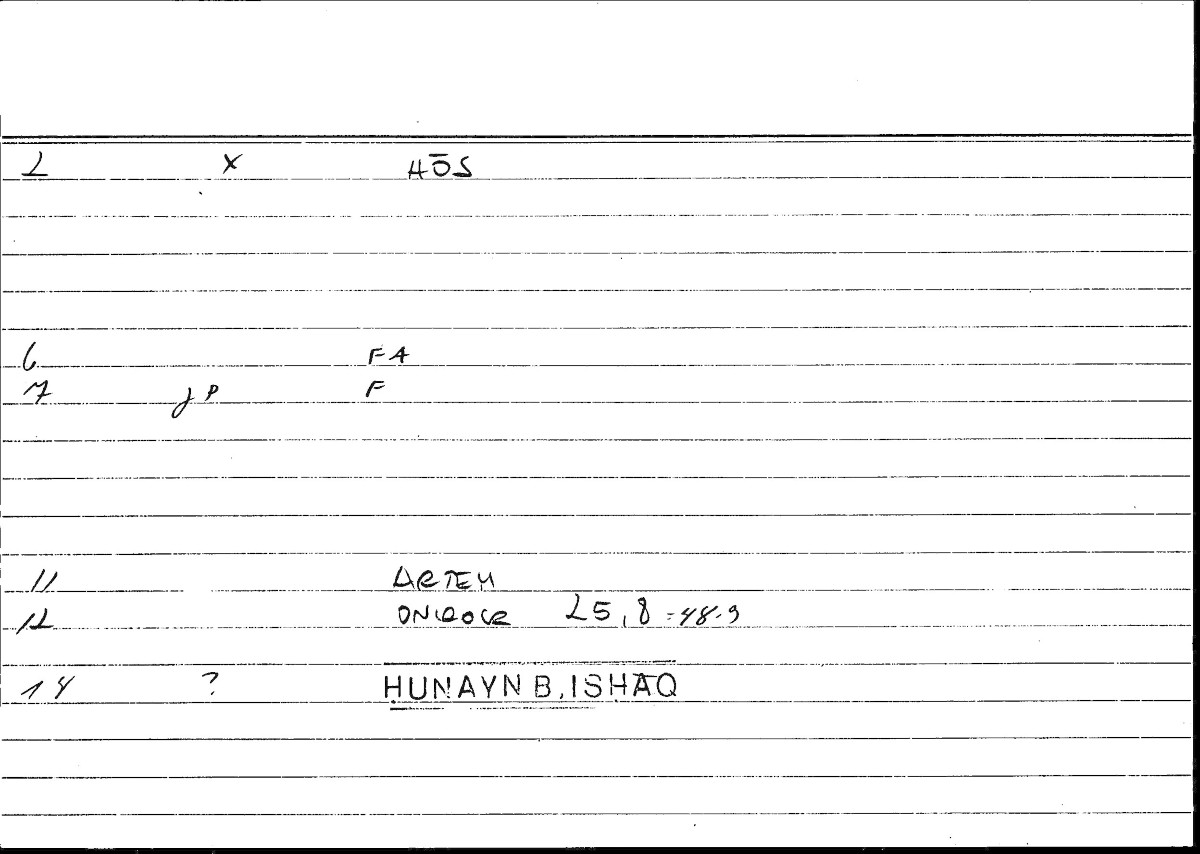 2 x HŌS
6 FA
7 JP F
11 ARTEM
12 ONIROCR 25,8 = 48.9
14 ? ḤUNAYN B. ISḤĀQ